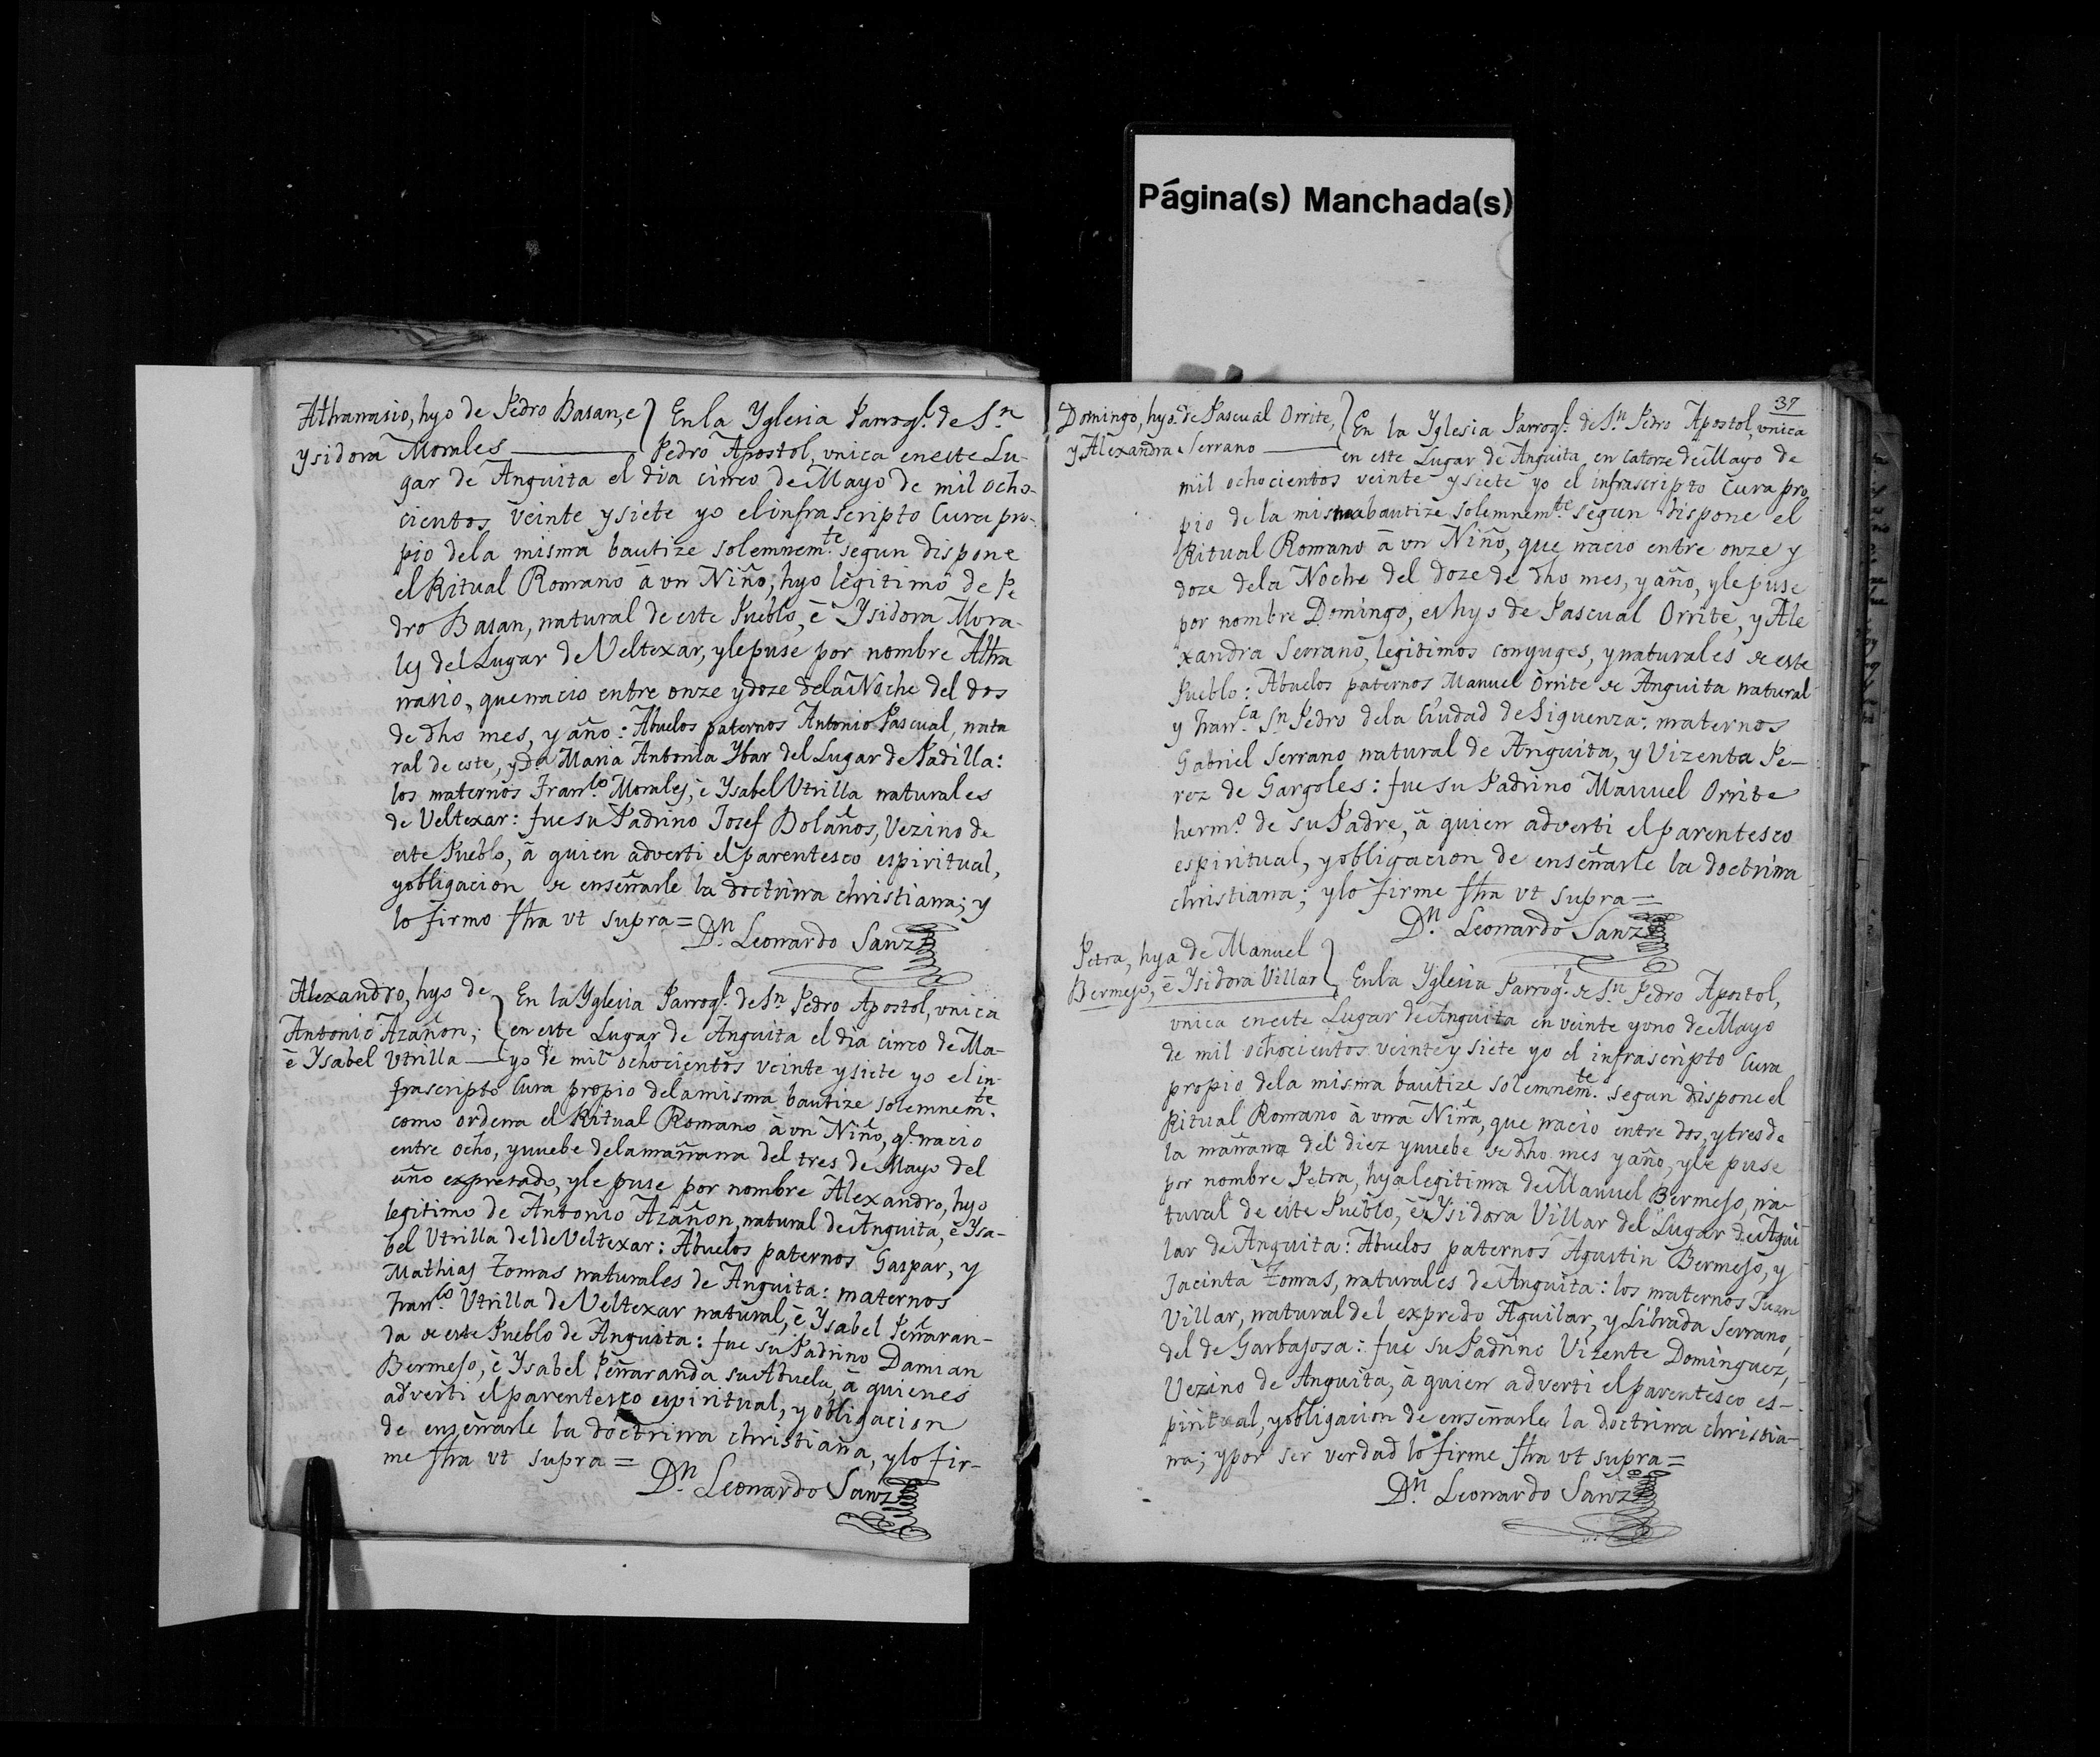 Página(s) Manchada(s)
Athanasio, hyo de Pedro Basan, e
Ysidora Morales
En la Yglesia Parroql. de Sn.
Pedro Apostol, vnica en este Lu-
gar de Anguita el dia cinco de Mayo de mil ocho-
cientos veinte y siete yo el infrascripto Cura pro-
pio de la misma bautize solemnemte. segun dispone
el Ritual Romano à vn Niño, hyo legitimo de Pe
dro Basan, natural de este Pueblo, è Ysidora Mora-
les del Lugar de Veltexar, y le puse por nombre Atha
nasio, que nacio entre onze y doze de la Noche del dos
de dho mes, y año: Abuelos paternos Antonio Pascual, natu
ral de este, y Da. Maria Antonia Ybar del Lugar de Padilla:
los maternos Franco. Morales, è Ysabel Vtrilla naturales
de Veltexar: fue su Padrino Josef Bolaños, Vezino de
este Pueblo, à quien adverti el parentesco espiritual,
y obligacion de enseñarle la doctrina christiana; y
lo firmo fha vt supra =
Dn. Leonardo Sanz
Alexandro, hyo de
Antonio Azañon,
è Ysabel Vtrilla
En la Yglesia Parroql. de Sn. Pedro Apostol, vnica
en este Lugar de Anguita el dia cinco de Ma-
yo de mil ochocientos veinte y siete yo el in-
frascripto Cura propio de la misma bautize solemnemte.
como ordena el Ritual Romano à vn Niño, ql. nacio
entre ocho, y nuebe de la mañana del tres de Mayo del
año expresado, y le puse por nombre Alexandro, hyo
legitimo de Antonio Azañon, natural de Anguita, è Ysa-
bel Vtrilla del de Veltexar: Abuelos paternos Gaspar, y
Mathias Tomas naturales de Anguita: maternos
Franco. Vtrilla de Veltexar natural, è Ysabel Peñaran-
da de este Pueblo de Anguita: fue su Padrino Damian
Bermejo, è Ysabel Peñaranda su Abuela, à quienes
adverti el parentesco espiritual, y obligacion
de enseñarle la doctrina christiana, y lo fir-
me fha vt supra =
Dn. Leonardo Sanz
37
Domingo, hyo de Pascual Orrite,
y Alexandra Serrano
En la Yglesia Parroql. de Sn. Pedro Apostol, vnica
en este Lugar de Anguita, en catorze de Mayo de
mil ochocientos veinte y siete yo el infrascripto Cura pro
pio de la misma bautize solemnemte. segun dispone el
Ritual Romano à vn Niño, que nacio entre onze y
doze de la Noche del doze de dho mes, y año, y le puse
por nombre Domingo, es hyo de Pascual Orrite, y Ale
xandra Serrano, legitimos conyuges, y naturales de este
Pueblo: Abuelos paternos Manuel Orrite de Anguita natural
y Franca. Sn. Pedro de la Ciudad de Siguenza: maternos
Gabriel Serrano natural de Anguita, y Vizenta Pe-
rez de Gargoles: fue su Padrino Manuel Orrite
hermo. de su Padre, à quien adverti el parentesco
espiritual, y obligacion de enseñarle la doctrina
christiana; y lo firme fha vt supra =
Dn. Leonardo Sanz
Petra, hya de Manuel
Bermejo, è Ysidora Villar
En la Yglesia Parroql. de Sn. Pedro Apostol,
vnica en este Lugar de Anguita en veinte y vno de Mayo
de mil ochocientos veinte y siete yo el infrascripto Cura
propio de la misma bautize solemnemte. segun dispone el
Ritual Romano à vna Niña, que nacio entre dos, y tres de
la mañana del diez y nuebe de dho mes y año, y le puse
por nombre Petra, hya legitima de Manuel Bermejo, na-
tural de este Pueblo, è Ysidora Villar del Lugar de Agui
lar de Anguita: Abuelos paternos Agustin Bermejo, y
Jacinta Tomas, naturales de Anguita: los maternos Juan
Villar, natural del expredo Aguilar, y Librada Serrano,
del de Garbajosa: fue su Padrino Vizente Dominguez,
Vezino de Anguita, à quien adverti el parentesco es-
piritual, y obligacion de enseñarle la doctrina christia-
na; y por ser verdad lo firme fha vt supra =
Dn. Leonardo Sanz